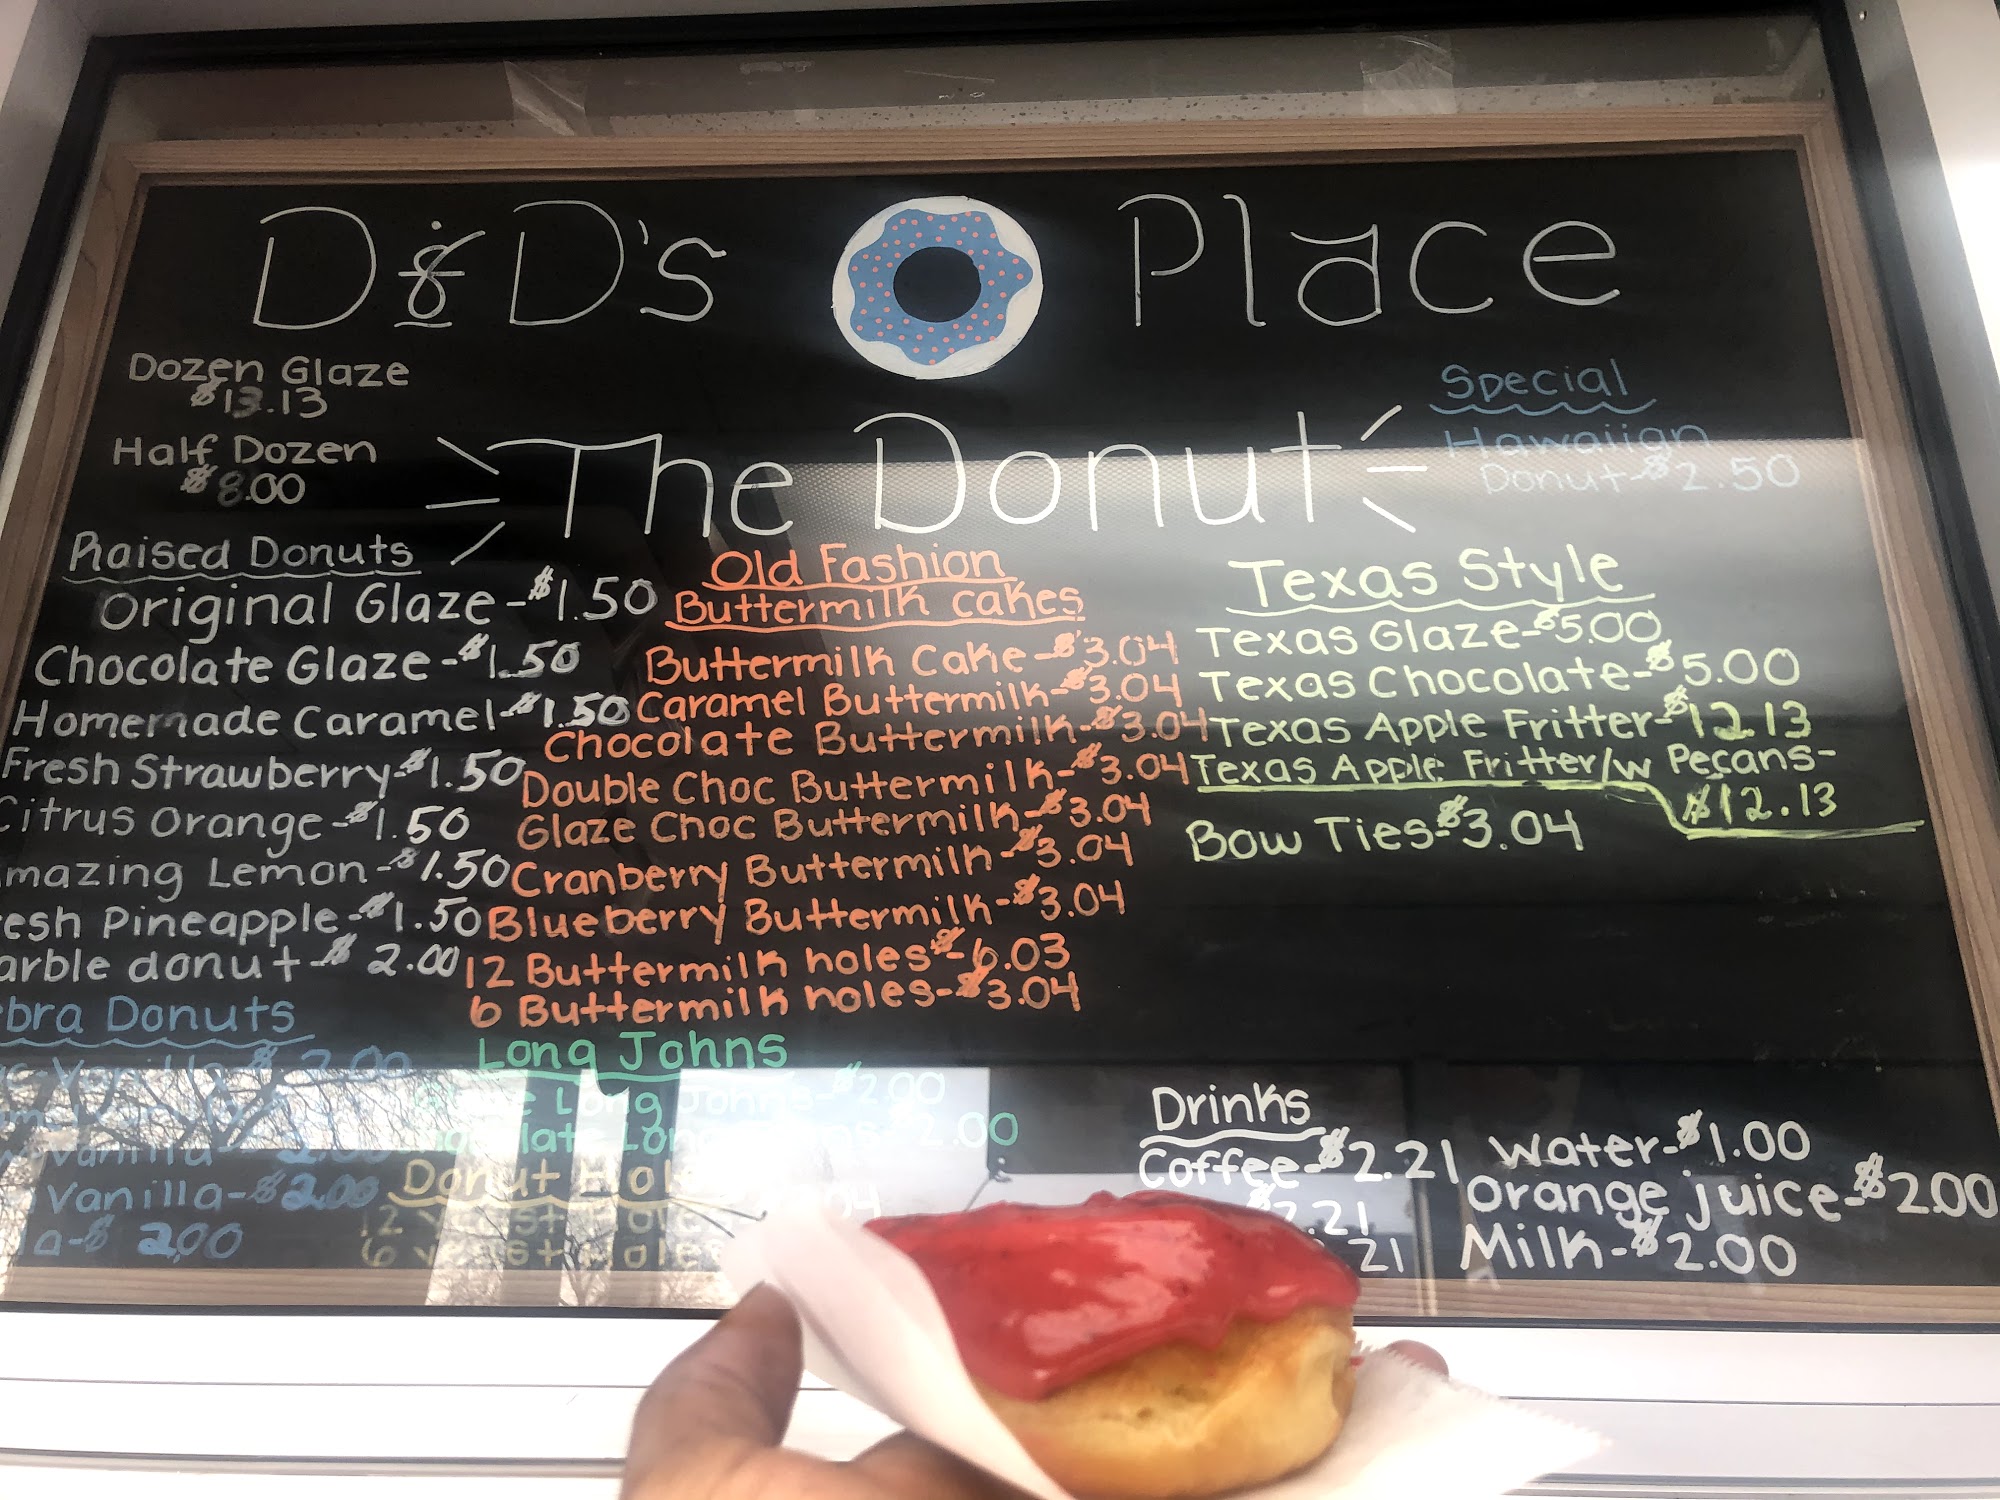 D&D's Place
The Donut
Dozen Glaze
$13.13
Half Dozen
$8.00
Raised Donuts
Original Glaze-$1.50
Chocolate Glaze-$1.50
Homemade Caramel-$1.50
Fresh Strawberry-$1.50
Citrus Orange-$1.50
mazing Lemon-$1.50
esh Pineapple-$1.50
arble donut-$2.00
bra Donuts
Vanilla $2.00
Vanilla 2.00
Vanilla-$2.00
la-$2.00
Old Fashion
Buttermilk cakes
Buttermilk Cake-$3.04
Caramel Buttermilk-$3.04
Chocolate Buttermilk-$3.04
Double Choc Buttermilk-$3.04
Glaze Choc Buttermilk-$3.04
Cranberry Buttermilk-$3.04
Blueberry Buttermilk-$3.04
12 Buttermilk holes-$6.03
6 Buttermilk holes-$3.04
Long Johns
Long Johns-$2.00
Long $2.00
Donut Hol
12 Yeast Holes
6 Yeast Holes
Special
Hawaiian
Donut-$2.50
Texas Style
Texas Glaze-$5.00
Texas Chocolate-$5.00
Texas Apple Fritter-$12.13
Texas Apple Fritter/w Pecans-
$12.13
Bow Ties-$3.04
Drinks
Coffee-$2.21
$2.21
21
Water-$1.00
Orange juice-$2.00
Milk-$2.00